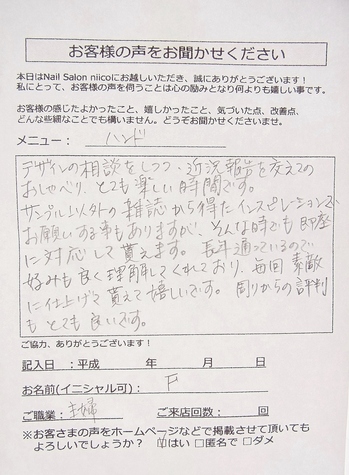 お客様の声をお聞かせください
本日はNail Salon niicoにお越しいただき、誠にありがとうございます！
私にとって、お客様の声を伺うことは心の励みとなり何よりも嬉しい事です。
お客様の感じたよかったこと、嬉しかったこと、気づいた点、改善点、
どんな些細なことでも構いません。どうぞお聞かせくださいませ。
メニュー： ハンド
デザインの相談をしつつ、近況報告を交えての
おしゃべり、とても楽しい時間です。
サンプル以外の雑誌から得たインスピレーションで
お願いする事もありますが、そんな時でも即座
に対応して貰えます。長年通っているので
好みも良く理解してくれており、毎回素敵
に仕上げて貰えて嬉しいです。周りからの評判
もとても良いです。
ご協力、ありがとうございます！
記入日：平成 年 月 日
お名前(イニシャル可)： F
ご職業：主婦 ご来店回数： 回
※お客さまの声をホームページなどで掲載させて頂いても
よろしいでしょうか？ ☑はい □匿名で □ダメ